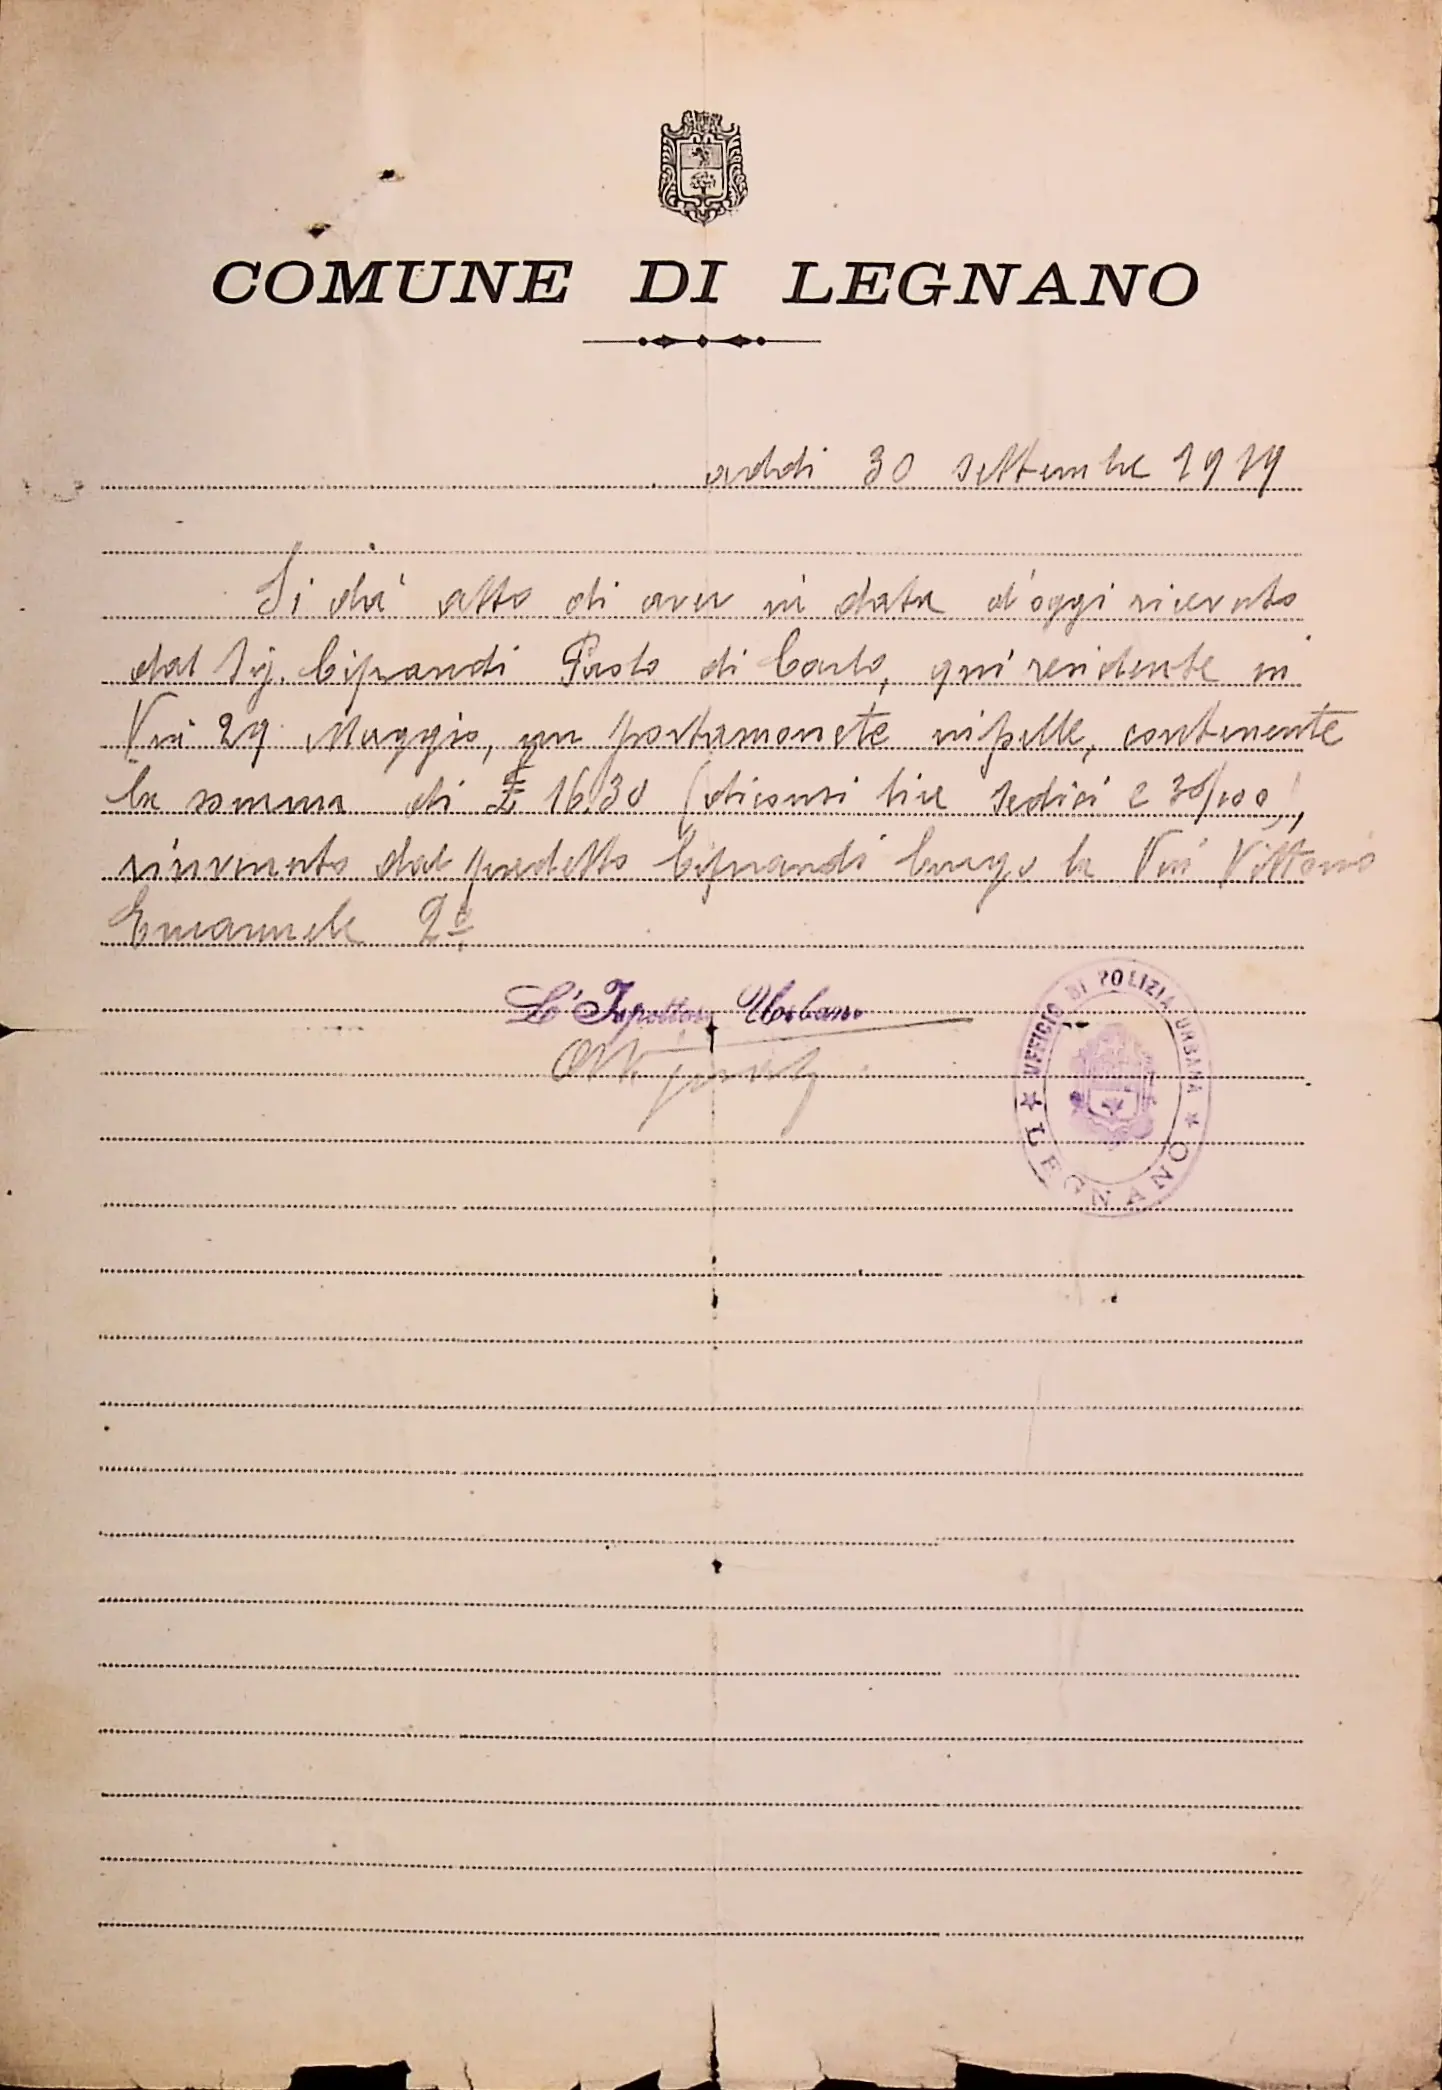 COMUNE DI LEGNANO
addi 30 settembre 1919
Si da' atto di aver in data d'oggi ricevuto
dal Sig. Ciprandi Paolo di Carlo, qui residente in
Via 29 Maggio, un portamonete in pelle, contenente
la somma di £ 16.30 (diconsi lire sedici e 30/100),
rinvenuto dal predetto Ciprandi lungo la Via Vittorio
Emanuele 2º
L'Ispettore Urbano
UFFICIO DI POLIZIA URBANA
LEGNANO